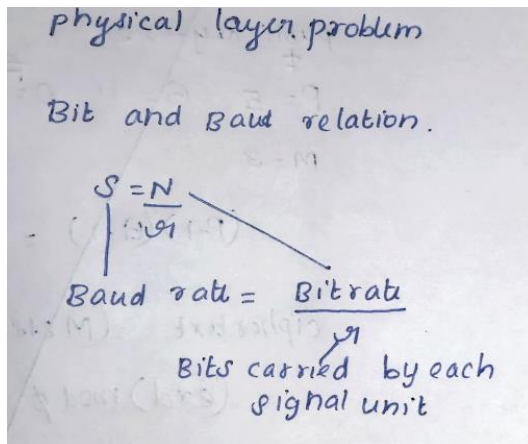 physical layer problem
Bit and Baud relation.
S = N
r
Baud rate = Bitrate
r
Bits carried by each
signal unit